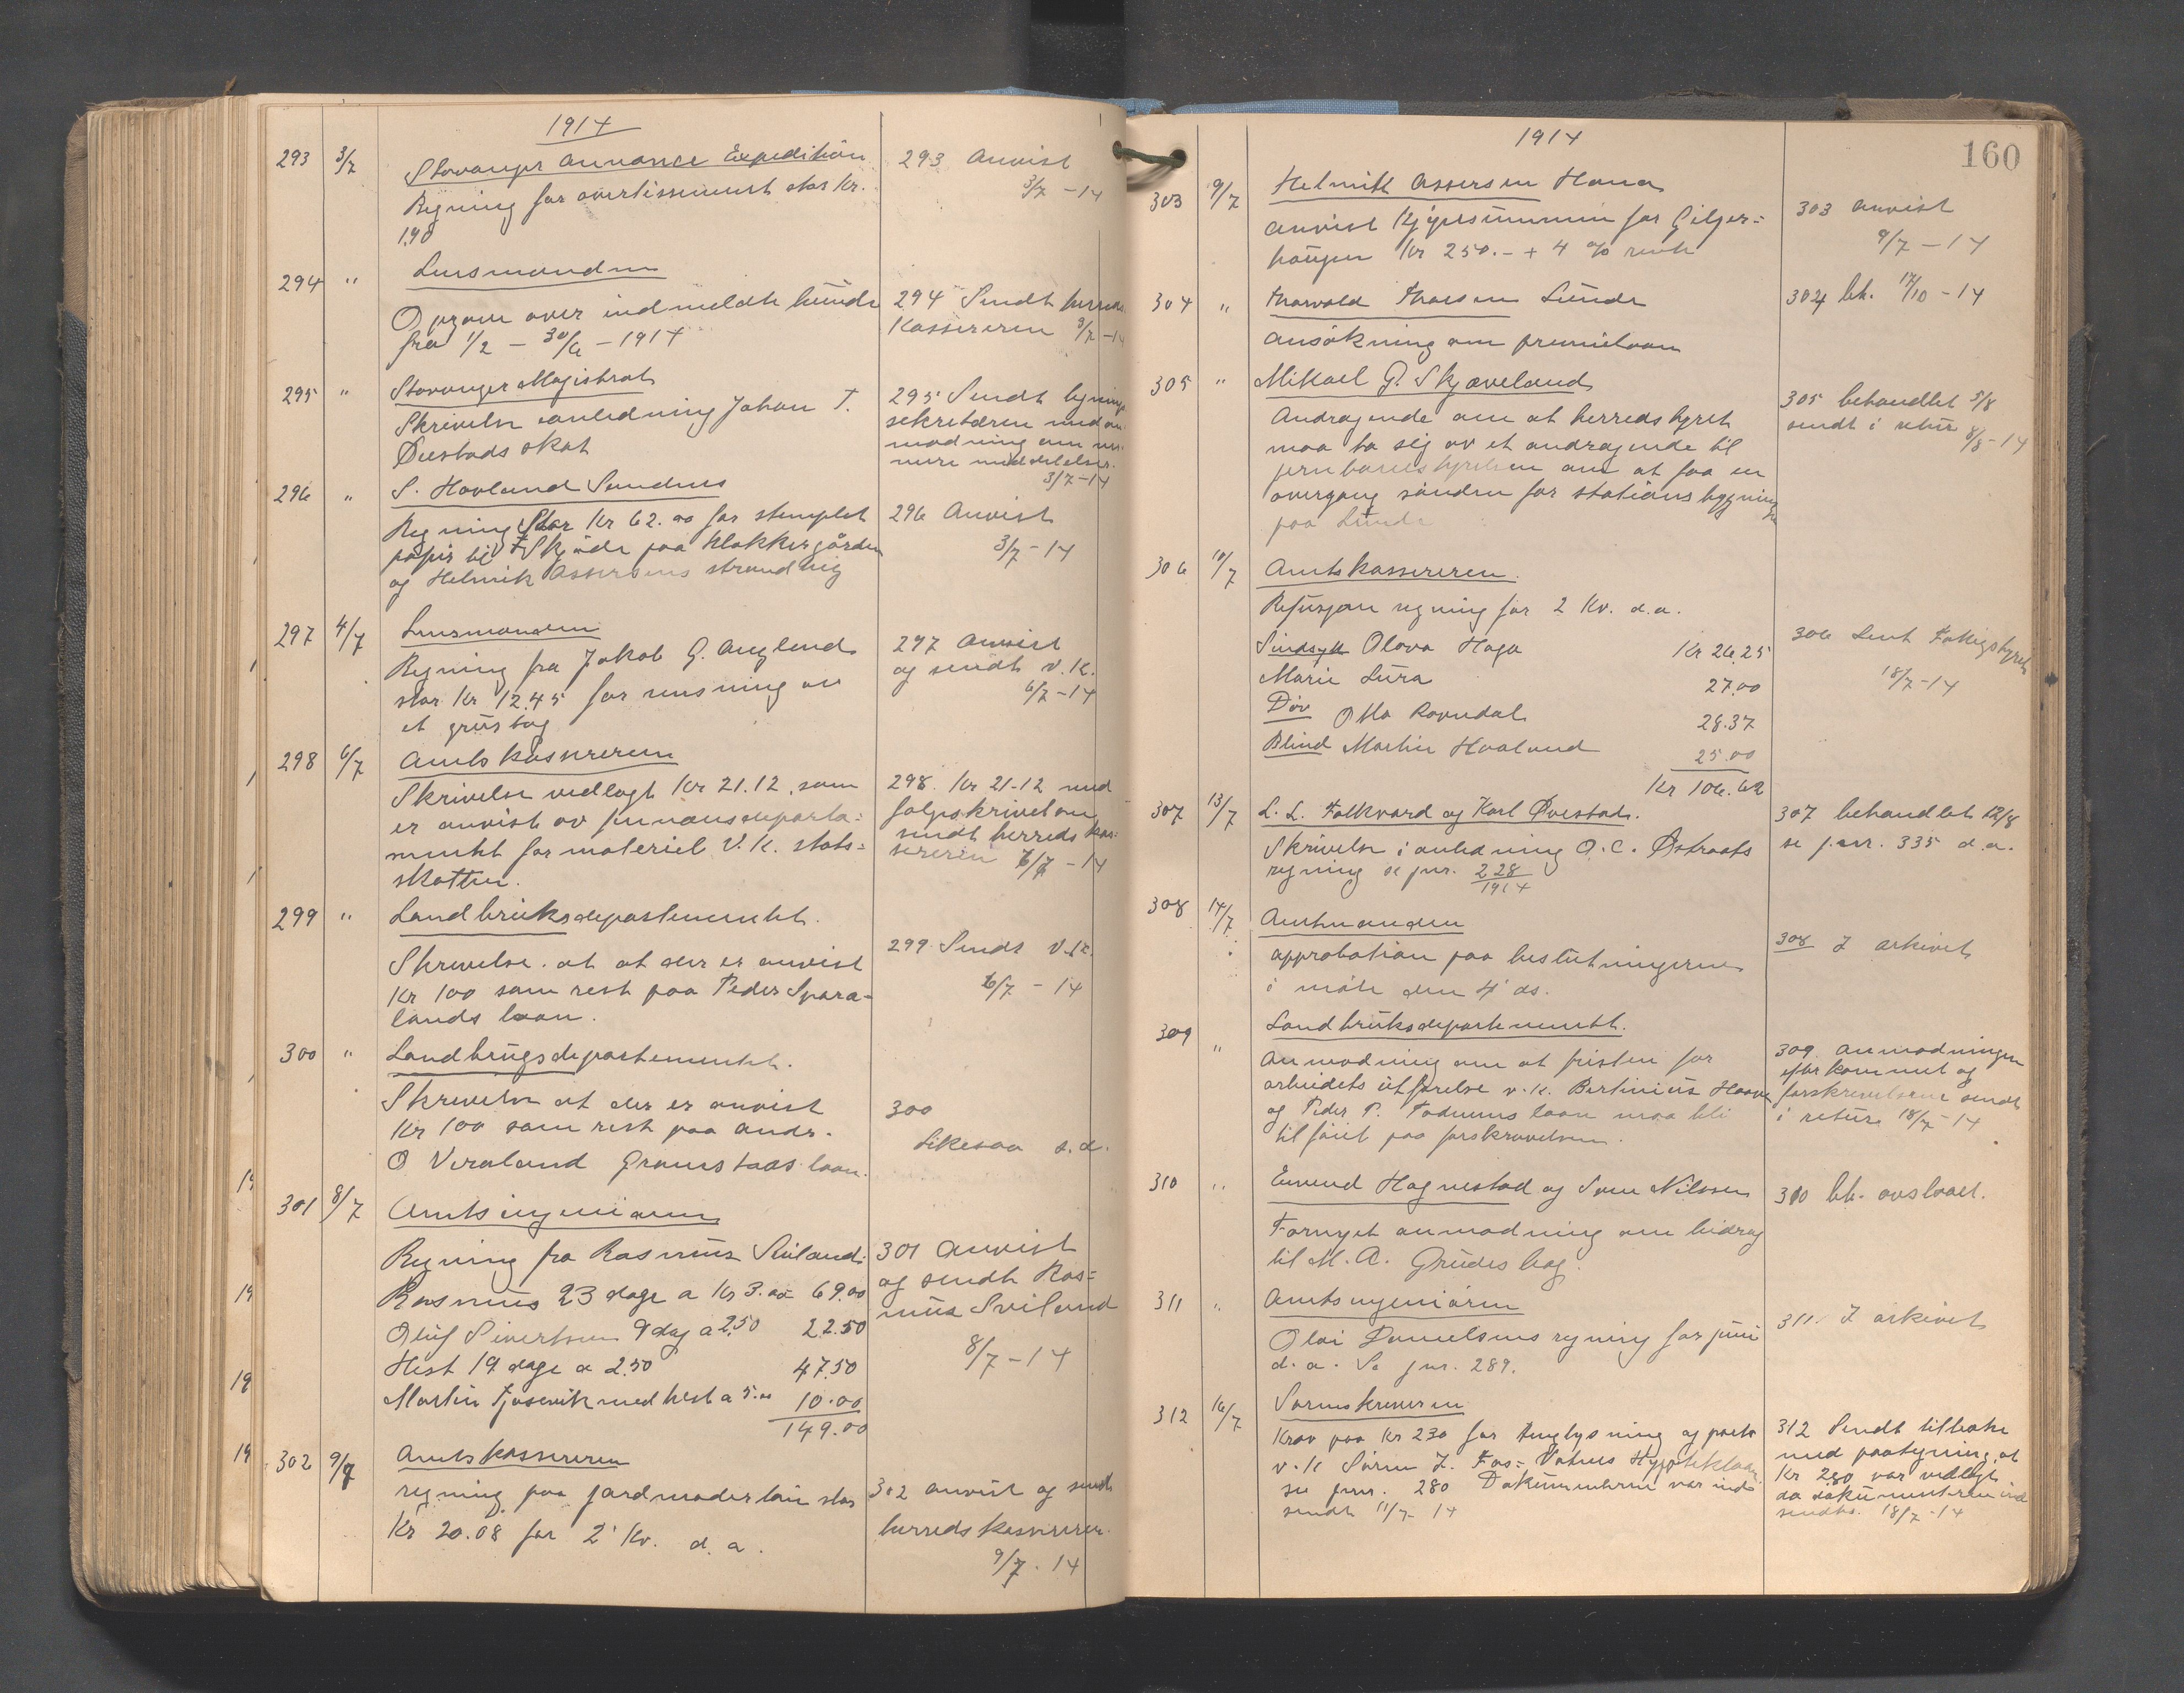 1914
293 3/7 Stavanger Annonce Expedition
Regning for avertissement stor Kr.
1,90
293 Anvist
3/7 - 14
294 " Lensmanden
Opgave over indmeldte hunde
fra 1/2 - 30/6 - 1914
294 Sendt herreds
Kassereren 3/7 - 14
295 " Stavanger Magistrat
Skrivelse anledning Johan T.
Øvestads skat
295 Sendt ligning
sekretæren med an
modning om
nere meddelelser.
3/7-14
296 " S. Hovland Sandnes
Regning stor Kr 62.00 for stemplet
papir til Skjøde paa Klokkergården
og Helmik Assersens strandleie
296 Anvist
3/7 - 14
297 4/7 Lensmanden
Regning fra Jakob G. Auglend
stor Kr 12.45 for rensning av
et grustag
297 Anvist
og sendt v.K.
6/7 - 14
298 6/7 Amtskassereren
Skrivelse vedlagt Kr 21.12, som
er anvist av finansdeparte=
mentet for materiel v.K. stats=
skatten.
298. Kr 21-12 med
følgeskrivelse
sendt herredskas=
sereren 7/7 - 14
299 " Landbruksdepartementet.
Skrivelse. at at der er anvist
Kr 100 som rest paa Peder Spara=
lands laan.
299. Sendt v.K.
6/7 - 14
300 " Landbrugsdepartementet.
Skrivelse at der er anvist
Kr 100 som rest paa andr.
O Veraland Gramstads laan.
300
Likesaa s.d.
301 8/7 Amtsingeniøren
Regning fra Rasmus Sviland.
Rasmus 23 dage a Kr 3.00 69.00
Oluf Sivertsen 9 dag a 2.50 22.50
Hest 19 dage a 2.50 47.50
Martin Fjosevik med hest a 5.00 10.00
149.00
301 Anvist
og sendt Ras=
mus Sviland
8/7 - 14
302 9/7 Amtskassereren
regning paa jordmoderløn stor
Kr 20.08 for 2' Kv. d. a.
302 anvist og sendt
herredskassereren.
9/7. 14
1914
160
303 9/7 Helmik Assersen Hana
anvist Kjøpesummen for Giljer=
haugen Kr 250.- + 4 % rente
303 anvist
9/7 - 14
304 " Thorvald Thorsen Lunde
Ansøkning om premielaan
304 bh. 17/10 - 14
305 " Mikael G. Skjæveland
Andragende om at herredstyret
maa ta sig av et andragende til
jernbanestyrelsen om at faa en
overgang sønden for stationsbygningen
paa Lunde
305 behandlet 5/8
sendt i retur 8/8 - 14
306 10/7 Amtskassereren.
Refusjon regning for 2 Kv. d.a.
Sindsyk Olava Haga Kr 26,25
Marie Lura 27.00
Døv Otto Ravndal 28.37
Blind Martin Haaland 25.00
Kr 106.62
306 Sent Fatigstyret
18/7-14
307 13/7 L. L. Folkvord og Karl Øvestad.
Skrivelse i anledning O. C. Østraats
regning se jnr. 228/1914
307 behandlet 12/8
se jnr. 335 d.a.
308 14/7 Amtmanden
approbation paa beslutningerne
i møte den 4' ds.
308 I arkivet
309 " Landbruksdepartementet.
Anmodning om at fristen for
arbeidets utførelse v.k. Bertinius Hoove
og Peder P. Foduums laan maa bli
tilføiet paa forskrivelsen.
309. Anmodningen
efterkommet og
forskrivelsene sendt
i retur 18/7 - 14
310 " Eivind Hognestad og Sven Nilssen
Fornyet anmodning om bidrag
til M. A. Grudes bog.
310 bh. avslaaet.
311 " Amtsingeniøren
Olai Danielsens regning for juni
d. a. Se jnr. 289.
311. I arkivet
312 16/7 Sorenskriveren
Krav paa Kr 230 for tinglysning og porto
v.k Søren J. Fos= Vatnes Hypoteklaan.
se jnr. 280 Dokumenterne var ind
sendt 11/7 14
312 Sendt tilbake
med paategning at
Kr 280 var vedlagt
da dokumenterne ind
sendtes. 18/7 - 14